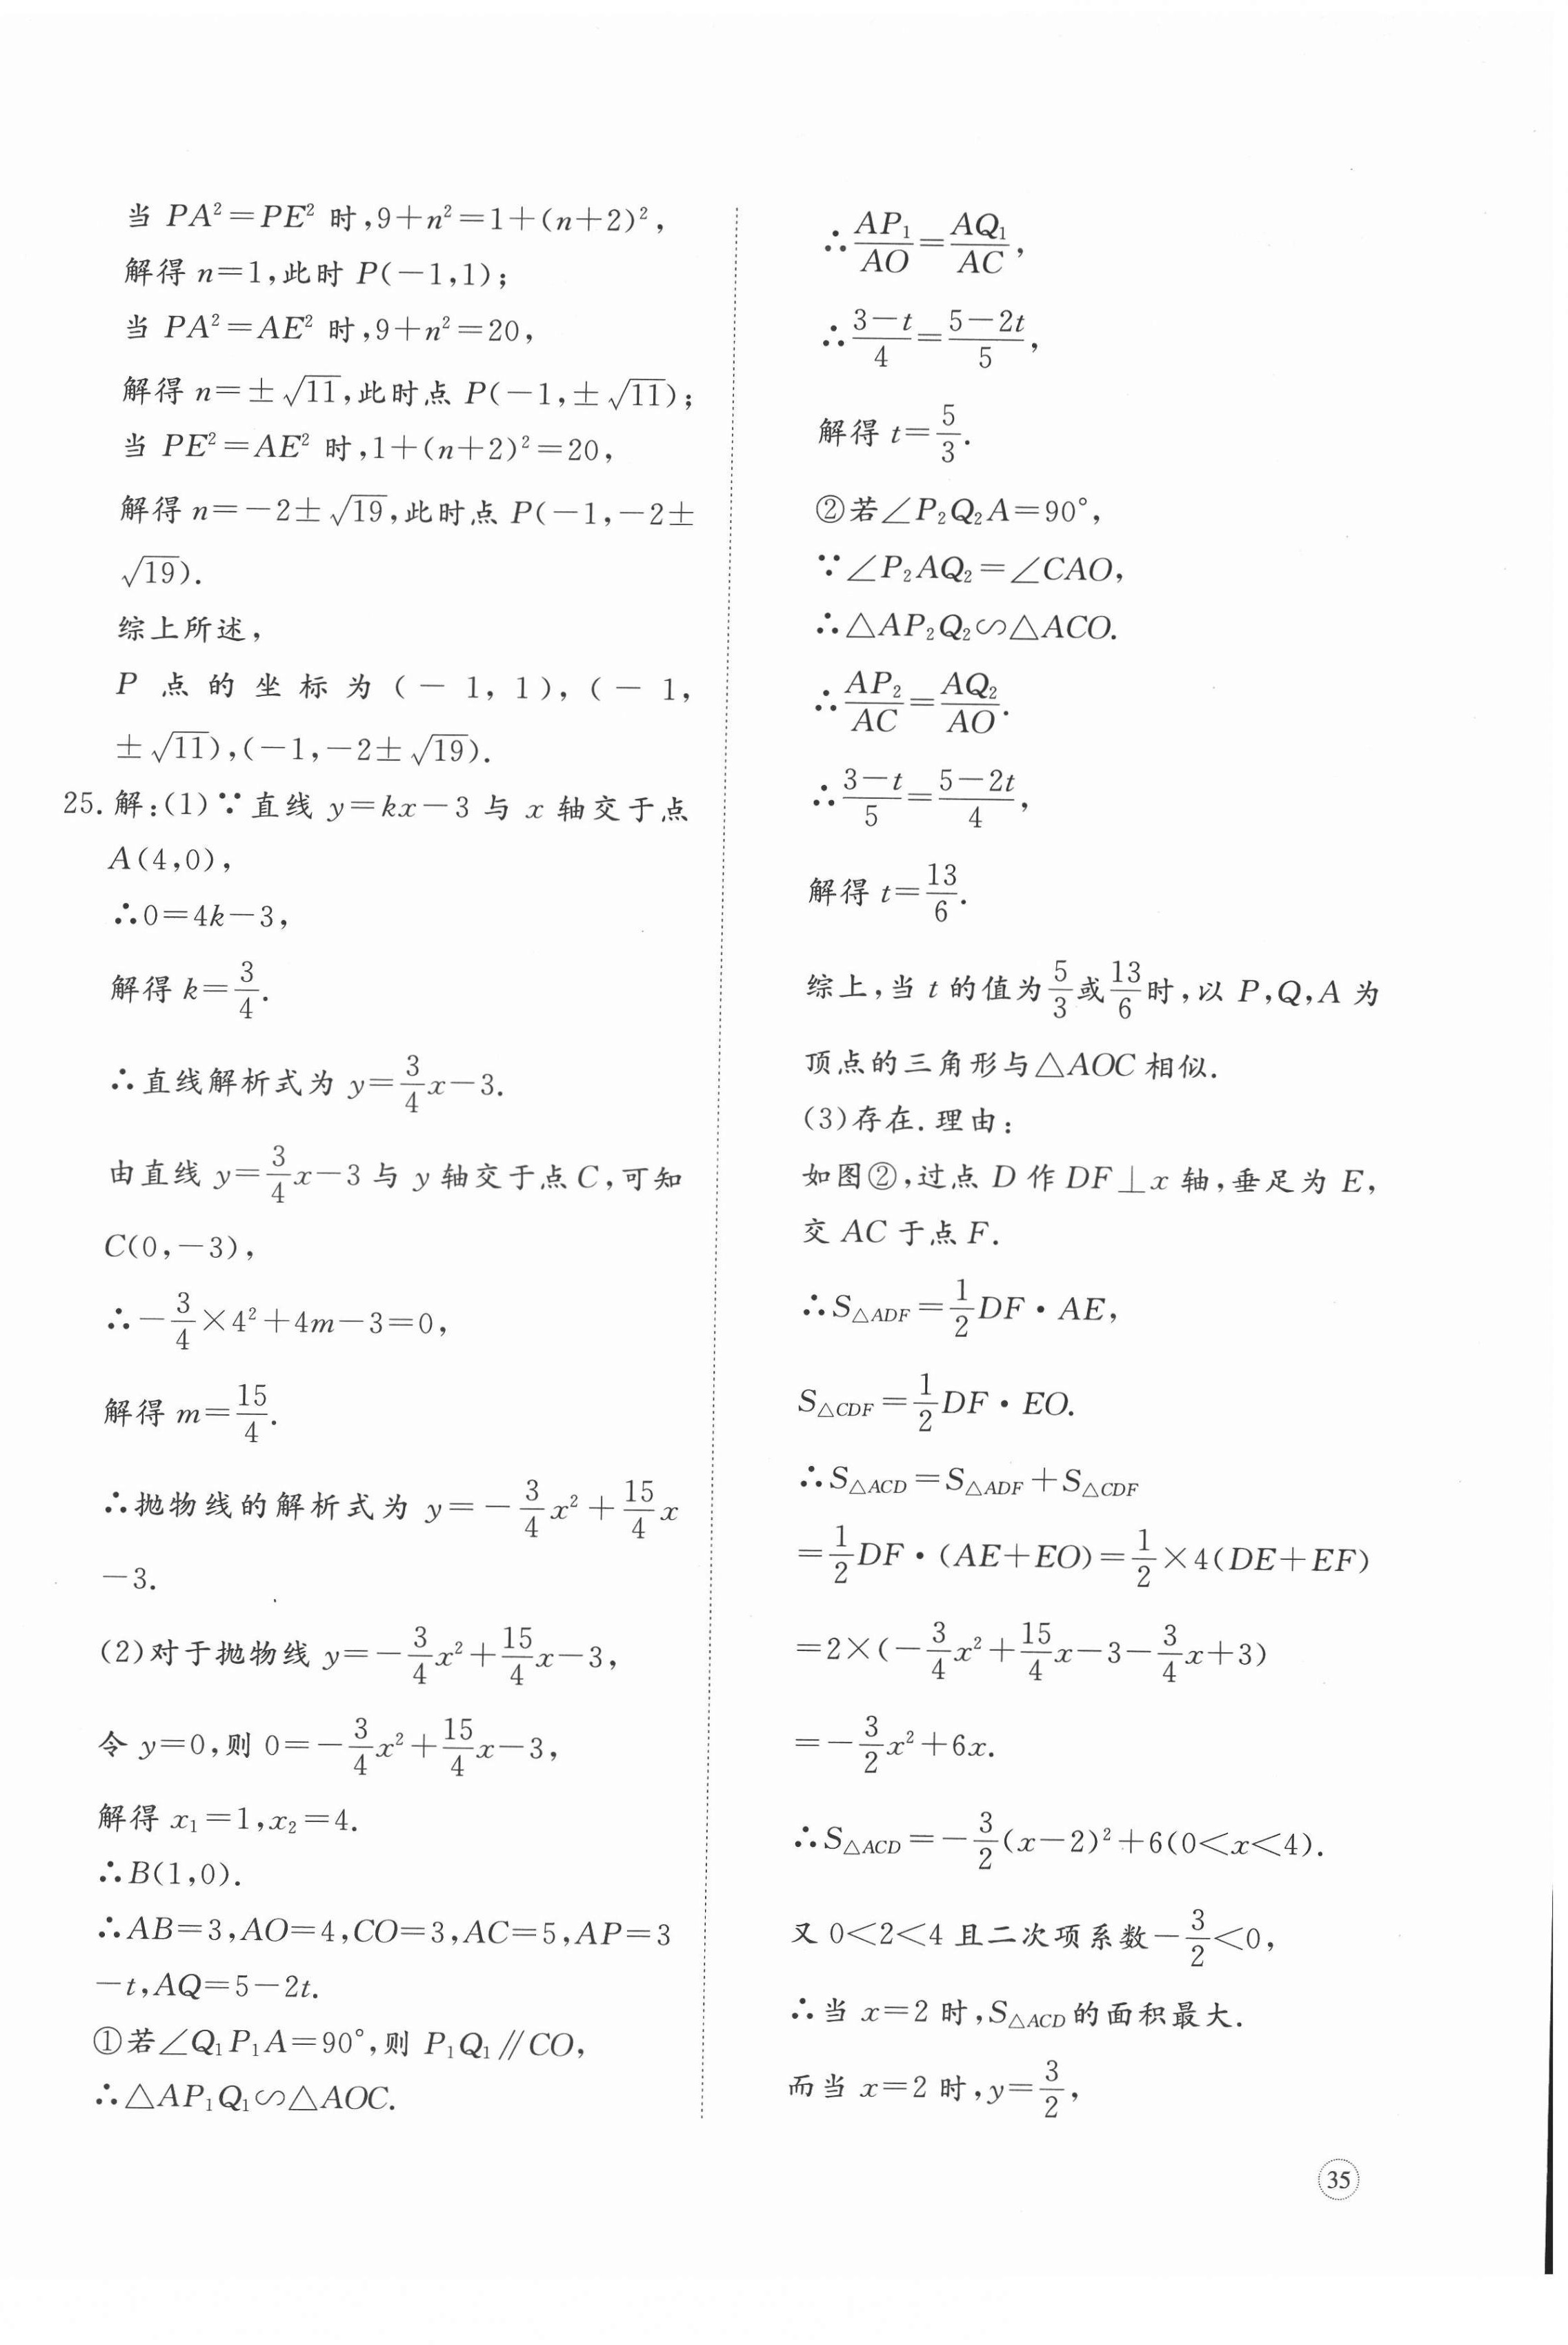 当 PA²=PE² 时,9+n²=1+(n+2)²,
解得 n=1,此时 P(-1,1);
当 PA²=AE² 时,9+n²=20,
解得 n=±√11,此时点 P(-1,±√11);
当 PE²=AE² 时,1+(n+2)²=20,
解得 n=-2±√19,此时点 P(-1,-2±
√19).
综上所述,
P 点的坐标为(-1,1),(-1,
±√11),(-1,-2±√19).
25. 解:(1)∵直线 y=kx-3 与 x 轴交于点
A(4,0),
∴0=4k-3,
解得 k=3/4.
∴直线解析式为 y=3/4x-3.
由直线 y=3/4x-3 与 y 轴交于点 C,可知
C(0,-3),
∴-3/4×4²+4m-3=0,
解得 m=15/4.
∴抛物线的解析式为 y=-3/4x²+15/4x
-3.
(2)对于抛物线 y=-3/4x²+15/4x-3,
令 y=0,则 0=-3/4x²+15/4x-3,
解得 x₁=1,x₂=4.
∴B(1,0).
∴AB=3,AO=4,CO=3,AC=5,AP=3
-t,AQ=5-2t.
①若∠Q₁P₁A=90°,则 P₁Q₁∥CO,
∴△AP₁Q₁∽△AOC.
∴AP₁/AO=AQ₁/AC,
∴(3-t)/4=(5-2t)/5,
解得 t=5/3.
②若∠P₂Q₂A=90°,
∵∠P₂AQ₂=∠CAO,
∴△AP₂Q₂∽△ACO.
∴AP₂/AC=AQ₂/AO.
∴(3-t)/5=(5-2t)/4,
解得 t=13/6.
综上,当 t 的值为5/3或13/6时,以 P,Q,A 为
顶点的三角形与△AOC 相似.
(3)存在.理由:
如图②,过点 D 作 DF⊥x 轴,垂足为 E,
交 AC 于点 F.
∴S△ADF=1/2DF·AE,
S△CDF=1/2DF·EO.
∴S△ACD=S△ADF+S△CDF
=1/2DF·(AE+EO)=1/2×4(DE+EF)
=2×(-3/4x²+15/4x-3-3/4x+3)
=-3/2x²+6x.
∴S△ACD=-3/2(x-2)²+6(0<x<4).
又 0<2<4 且二次项系数-3/2<0,
∴当 x=2 时,S△ACD的面积最大.
而当 x=2 时,y=3/2,
35